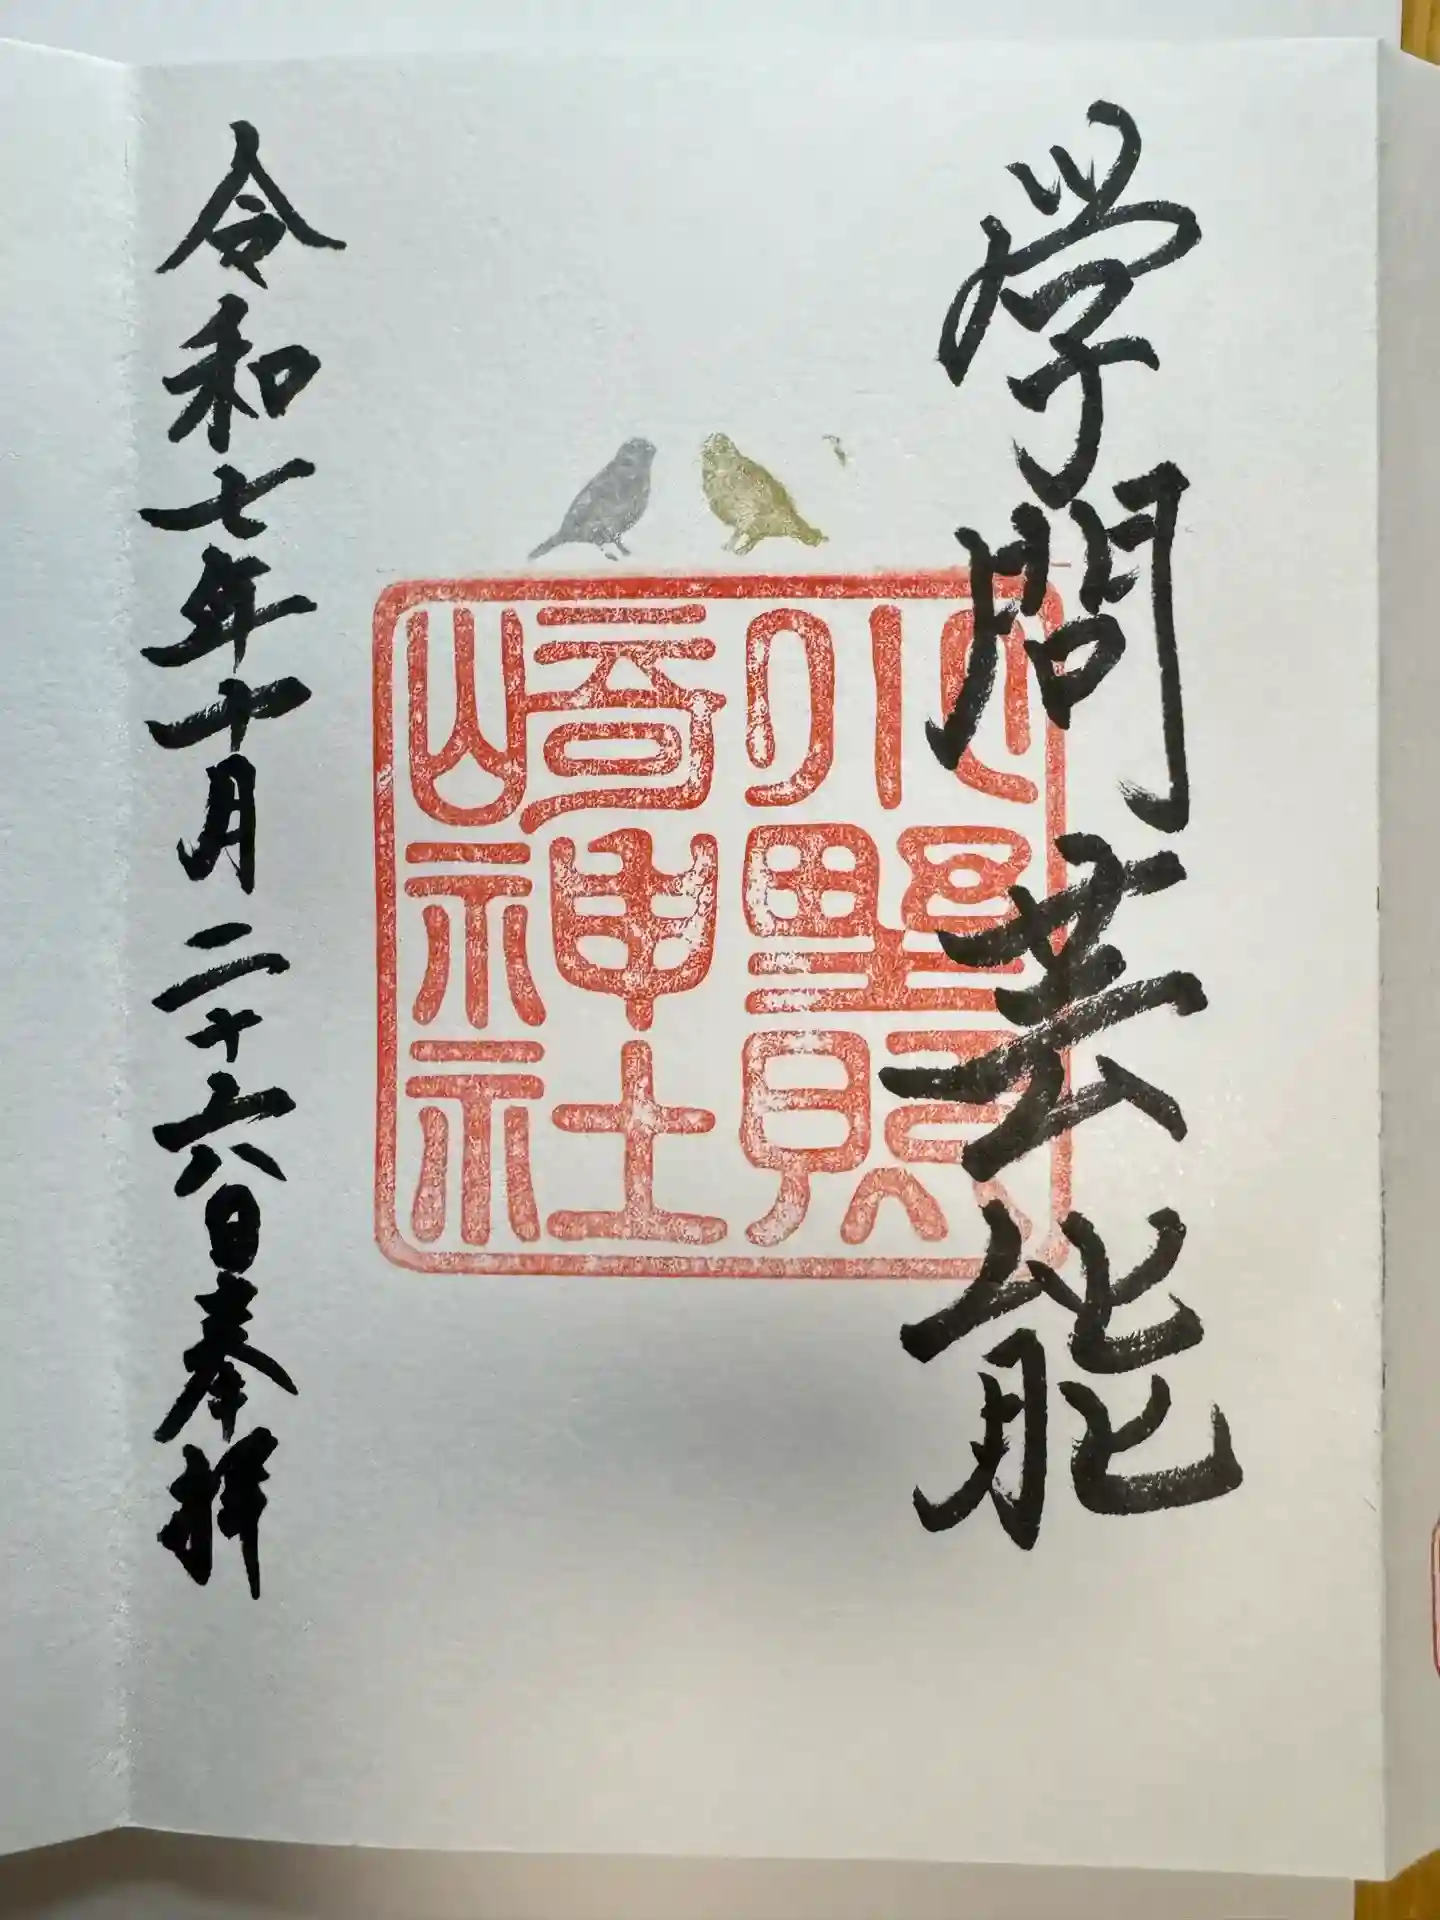 学問芸能
小野照
崎神社
令和七年十月二十六日奉拝